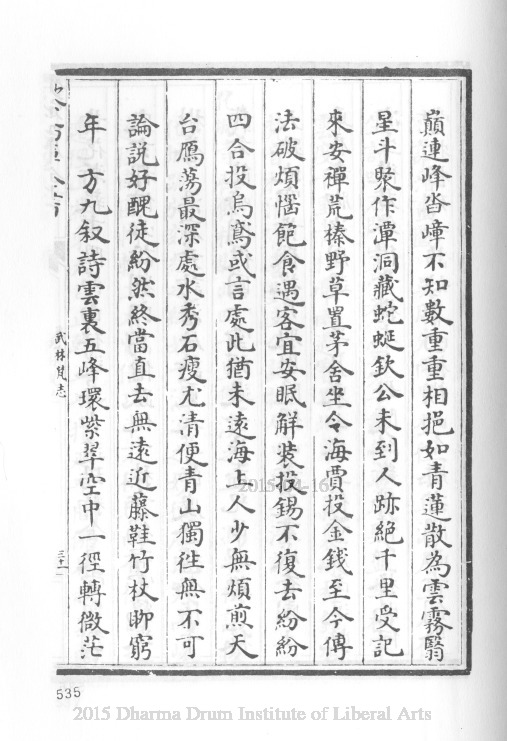 巔連峰沓嶂不知數重重相挹如青蓮散為雲霧翳
星斗聚作潭洞藏蛇蜒欽公未到人跡絕千里受記
來安禪荒榛野草置茅舍坐令海賈投金錢至今傳
法破煩惱飽食遇客宜安眠解裝投錫不復去紛紛
四合投烏鳶或言處此猶未遠海上人少無煩煎天
台鴈蕩最深處水秀石瘦尤清便青山獨往無不可
論說好醜徒紛然終當直去無遠近藤鞋竹杖聊窮
年　方九叙詩雲裏五峰環紫翠空中一徑轉微茫
武林梵志
三十一
2015-04-16
535
2015 Dharma Drum Institute of Liberal Arts